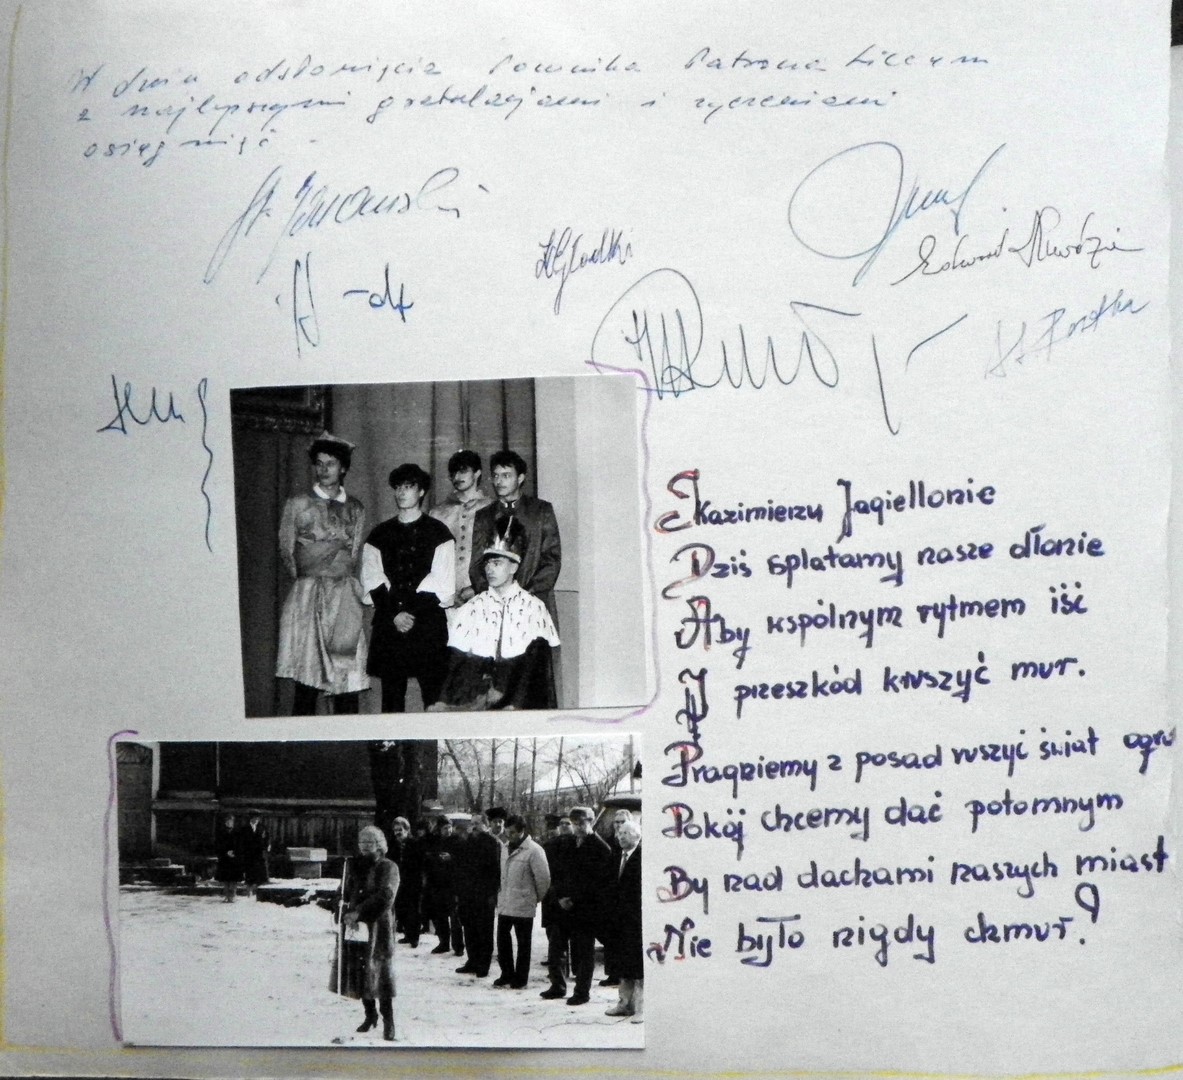 W dniu odsłonięcia Pomnika Patrona Liceum
z najlepszymi gratulacjami i życzeniami
osiągnięć -
Kazimierzu Jagiellonie
Dziś splatamy nasze dłonie
Aby wspólnym rytmem iść
I przeszkód kruszyć mur.
Pragniemy z posad ruszyć świat ogro
Pokój chcemy dać potomnym
By nad dachami naszych miast
Nie było nigdy chmur.